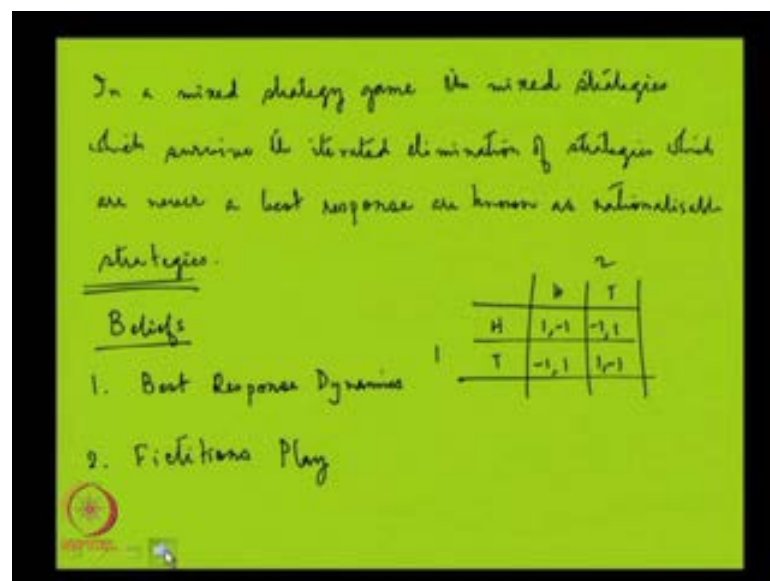 In a mixed strategy game the mixed strategies
which survive the iterated elimination of strategies which
are never a best response are known as rationalisable
strategies.
2
H T
Beliefs
H 1,-1 -1,1
1 T -1,1 1,-1
1. Best Response Dynamics
2. Fictitious Play